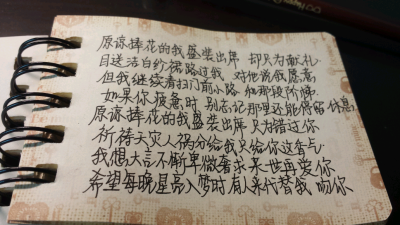 原谅捧花的我盛装出席 却只为献礼
目送洁白纱裙路过我 对他说我愿意
但我继续清扫门前小路 和那段阶梯
如果你疲惫时 别忘记那里还能停留休息
原谅捧花的我盛装出席 只为错过你
祈祷天灾人祸分给我只给你这香气
我想大言不断卑微奢求来世再爱你
希望每晚星亮入梦时有人来代替我 吻你